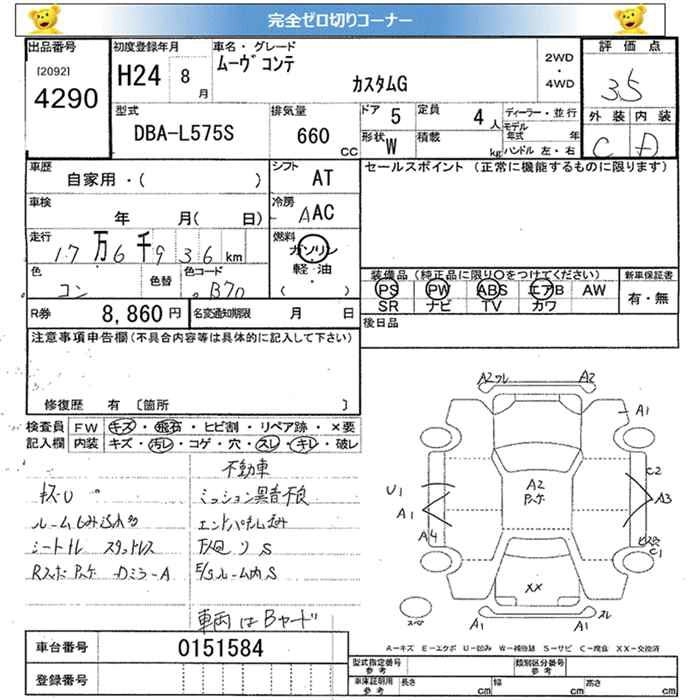 完全ゼロ切りコーナー
出品番号 初度登録年月 車名・グレード 評価点
[2092] 4290 H24 8月 ムーヴ コンテ カスタムG 2WD・4WD 3.5
型式 排気量 ドア 5 定員 4人 ディーラー・並行 外装 内装
DBA-L575S 660 CC 形状 W 積載 kg モデル年式 年 ハンドル 左・右 C D
車歴 シフト セールスポイント (正常に機能するものに限ります)
自家用・( ) AT
車検 冷房
年 月( 日) AAC
走行 燃料
17万6千936 km ガソリン・軽油・( )
色 色替 色コード 装備品 (純正品に限り○をつけてください) 新車保証書
コン B70 PS PW ABS エアB AW 有・無
SR ナビ TV カワ
R券 8,860円 名変通知期限 月 日 後日品
注意事項申告欄(不具合内容等は具体的に記入して下さい)
修復歴 有 [箇所 ]
検査員 FW キズ・飛石・ヒビ割・リペア跡・×要
記入欄 内装 キズ・汚レ・コゲ・穴・スレ・キレ・破レ
不動車
キズU ミッション異音不良
シートトレ スタットレス 下廻りS
E/Sルーム内S
車両はBヤード
A2ワレ A2
A1
C2
U1 A2
A1 A3
A4
C1
XX
スペア A1 A1 スレ
A-キズ E-エクボ U-凹み W-補修跡 S-サビ C-腐食 XX-交換済
車台番号 0151584
登録番号
型式指定番号 参考 類別区分番号 参考
車庫証明用 参考 長さ cm 幅 cm 高さ cm